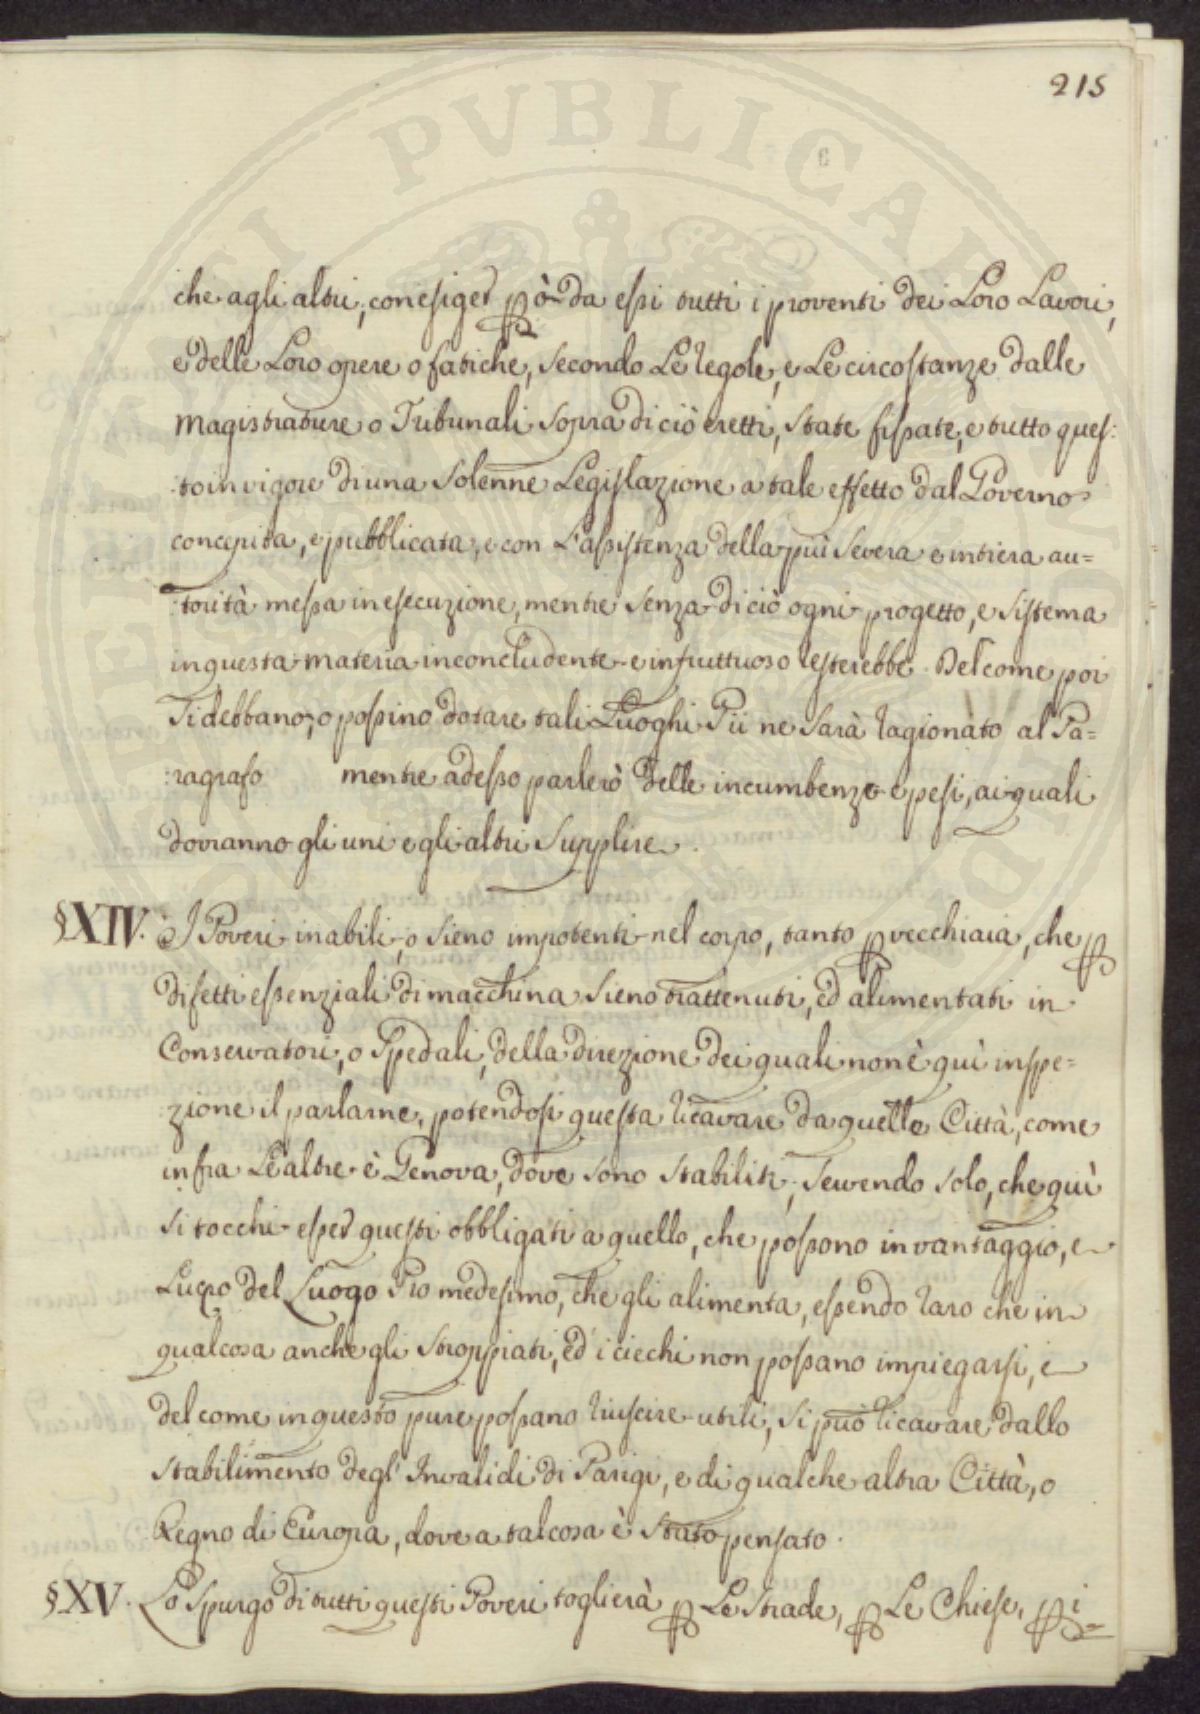 215
che agli altri, con esiger però da essi tutti i proventi dei Loro Lavori,
e delle Loro opere o fatiche, secondo Le regole, e Le circostanze dalle
Magistrature o Tribunali sopra di ciò eretti, state fissate, e tutto ques:
:to in vigore di una solenne Legislazione a tale effetto dal Governo
concepita, e pubblicata, e con L'assistenza della più severa e intiera au=
:torità messa in esecuzione, mentre senza di ciò ogni progetto, e sistema
in questa materia inconcludente e infruttuoso resterebbe. Del come poi
si debbano, o possino dotare tali Luoghi Pii ne sarà ragionato al Pa=
:ragrafo mentre adesso parlerò delle incumbenze e pesi, ai quali
dovranno gli uni e gli altri supplire.
§XIV. I Poveri inabili, o sieno impotenti nel corpo, tanto p vecchiaia, che p
difetti essenziali di macchina sieno trattenuti, ed alimentati in
Conservatori, o Spedali, della direzione dei quali non è quì inspe=
:zione il parlarne, potendosi questa ricavare da quelle Città, come
infra Le altre è Genova, dove sono stabiliti, servendo solo, che quì
si tocchi esser questi obbligati a quello, che possono in vantaggio, e
Lucro del Luogo Pio medesimo, che gli alimenta, essendo raro che in
qualcosa anche gli stroppiati, ed i ciechi non possano impiegarsi, e
del come in questo pure possano riuscire utili, si può ricavare dallo
stabilimento degl' Invalidi di Parigi, e di qualche altra Città, o
Regno di Europa, dove a tal cosa è stato pensato.
§XV. Lo spurgo di tutti questi Poveri toglierà p Le Strade, p Le Chiese, p i=